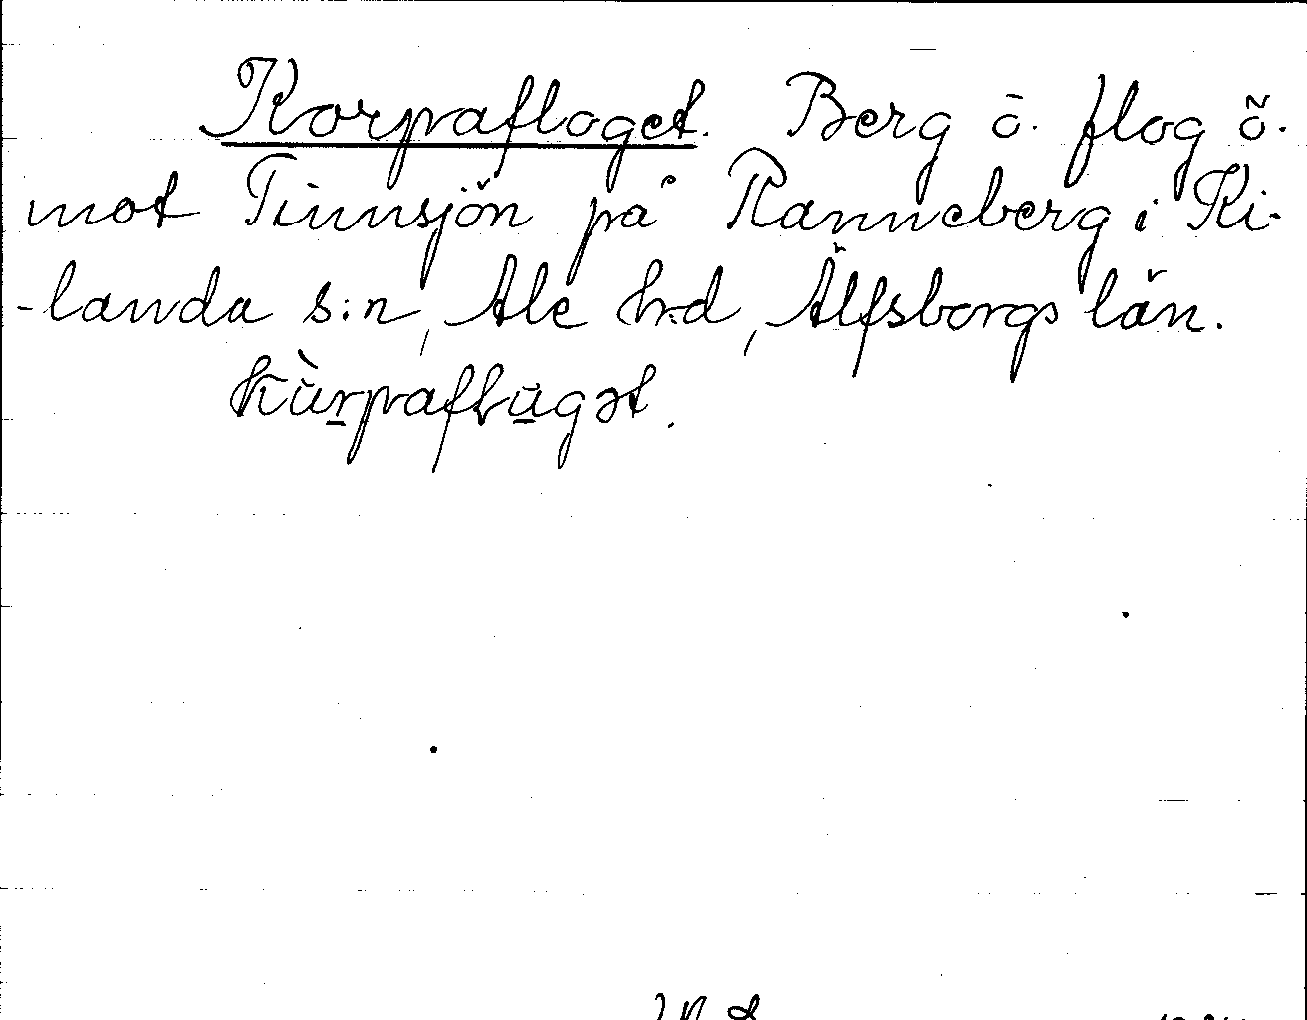 Korpafloget. Berg ō. flog ö.
mot Tinnsjön på Ranneberg i Ki-
-landa s:n, Ale h:d, Älfsborgs län.
kùrpaflūgət.